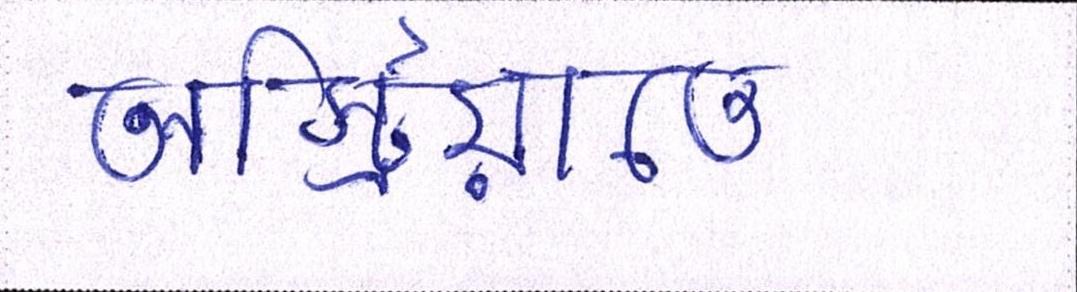 অস্ট্রিয়াতে